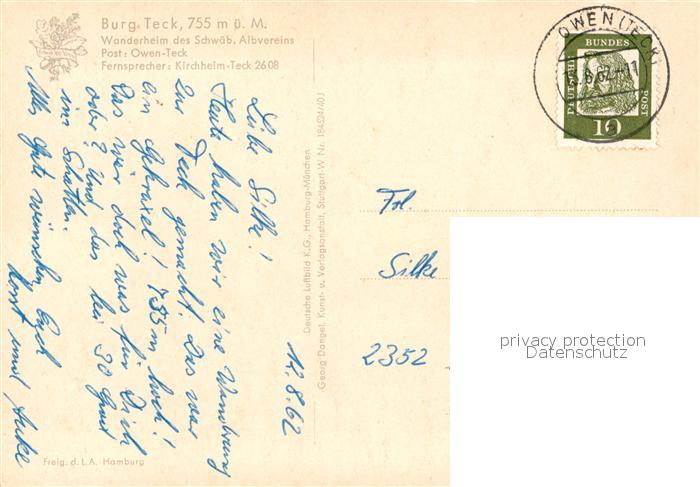 Burg Teck, 755 m ü. M.
Wanderheim des Schwäb. Albvereins
Post: Owen-Teck
Fernsprecher: Kirchheim-Teck 2608
12.8.62
Liebe Silke!
Heute haben wir eine Wanderung
zur Teck gemacht. Das war
ein Gekraxel! 755 m hoch!
Das wär doch was für Dich
oder? Und das bei 30 Grad
im Schatten.
Alles Gute wünschen Euch
Horst und Anke
Freig. d. L.A. Hamburg
Deutsche Luftbild K.G., Hamburg-München
Georg Dangel, Kunst- u. Verlagsanstalt, Stuttgart-W Nr. 184524/40J
OWEN (TECK)
.8.62-11
a
DEUTSCHE
BUNDES
POST
10
Frl.
Silke
2352
privacy protection
Datenschutz